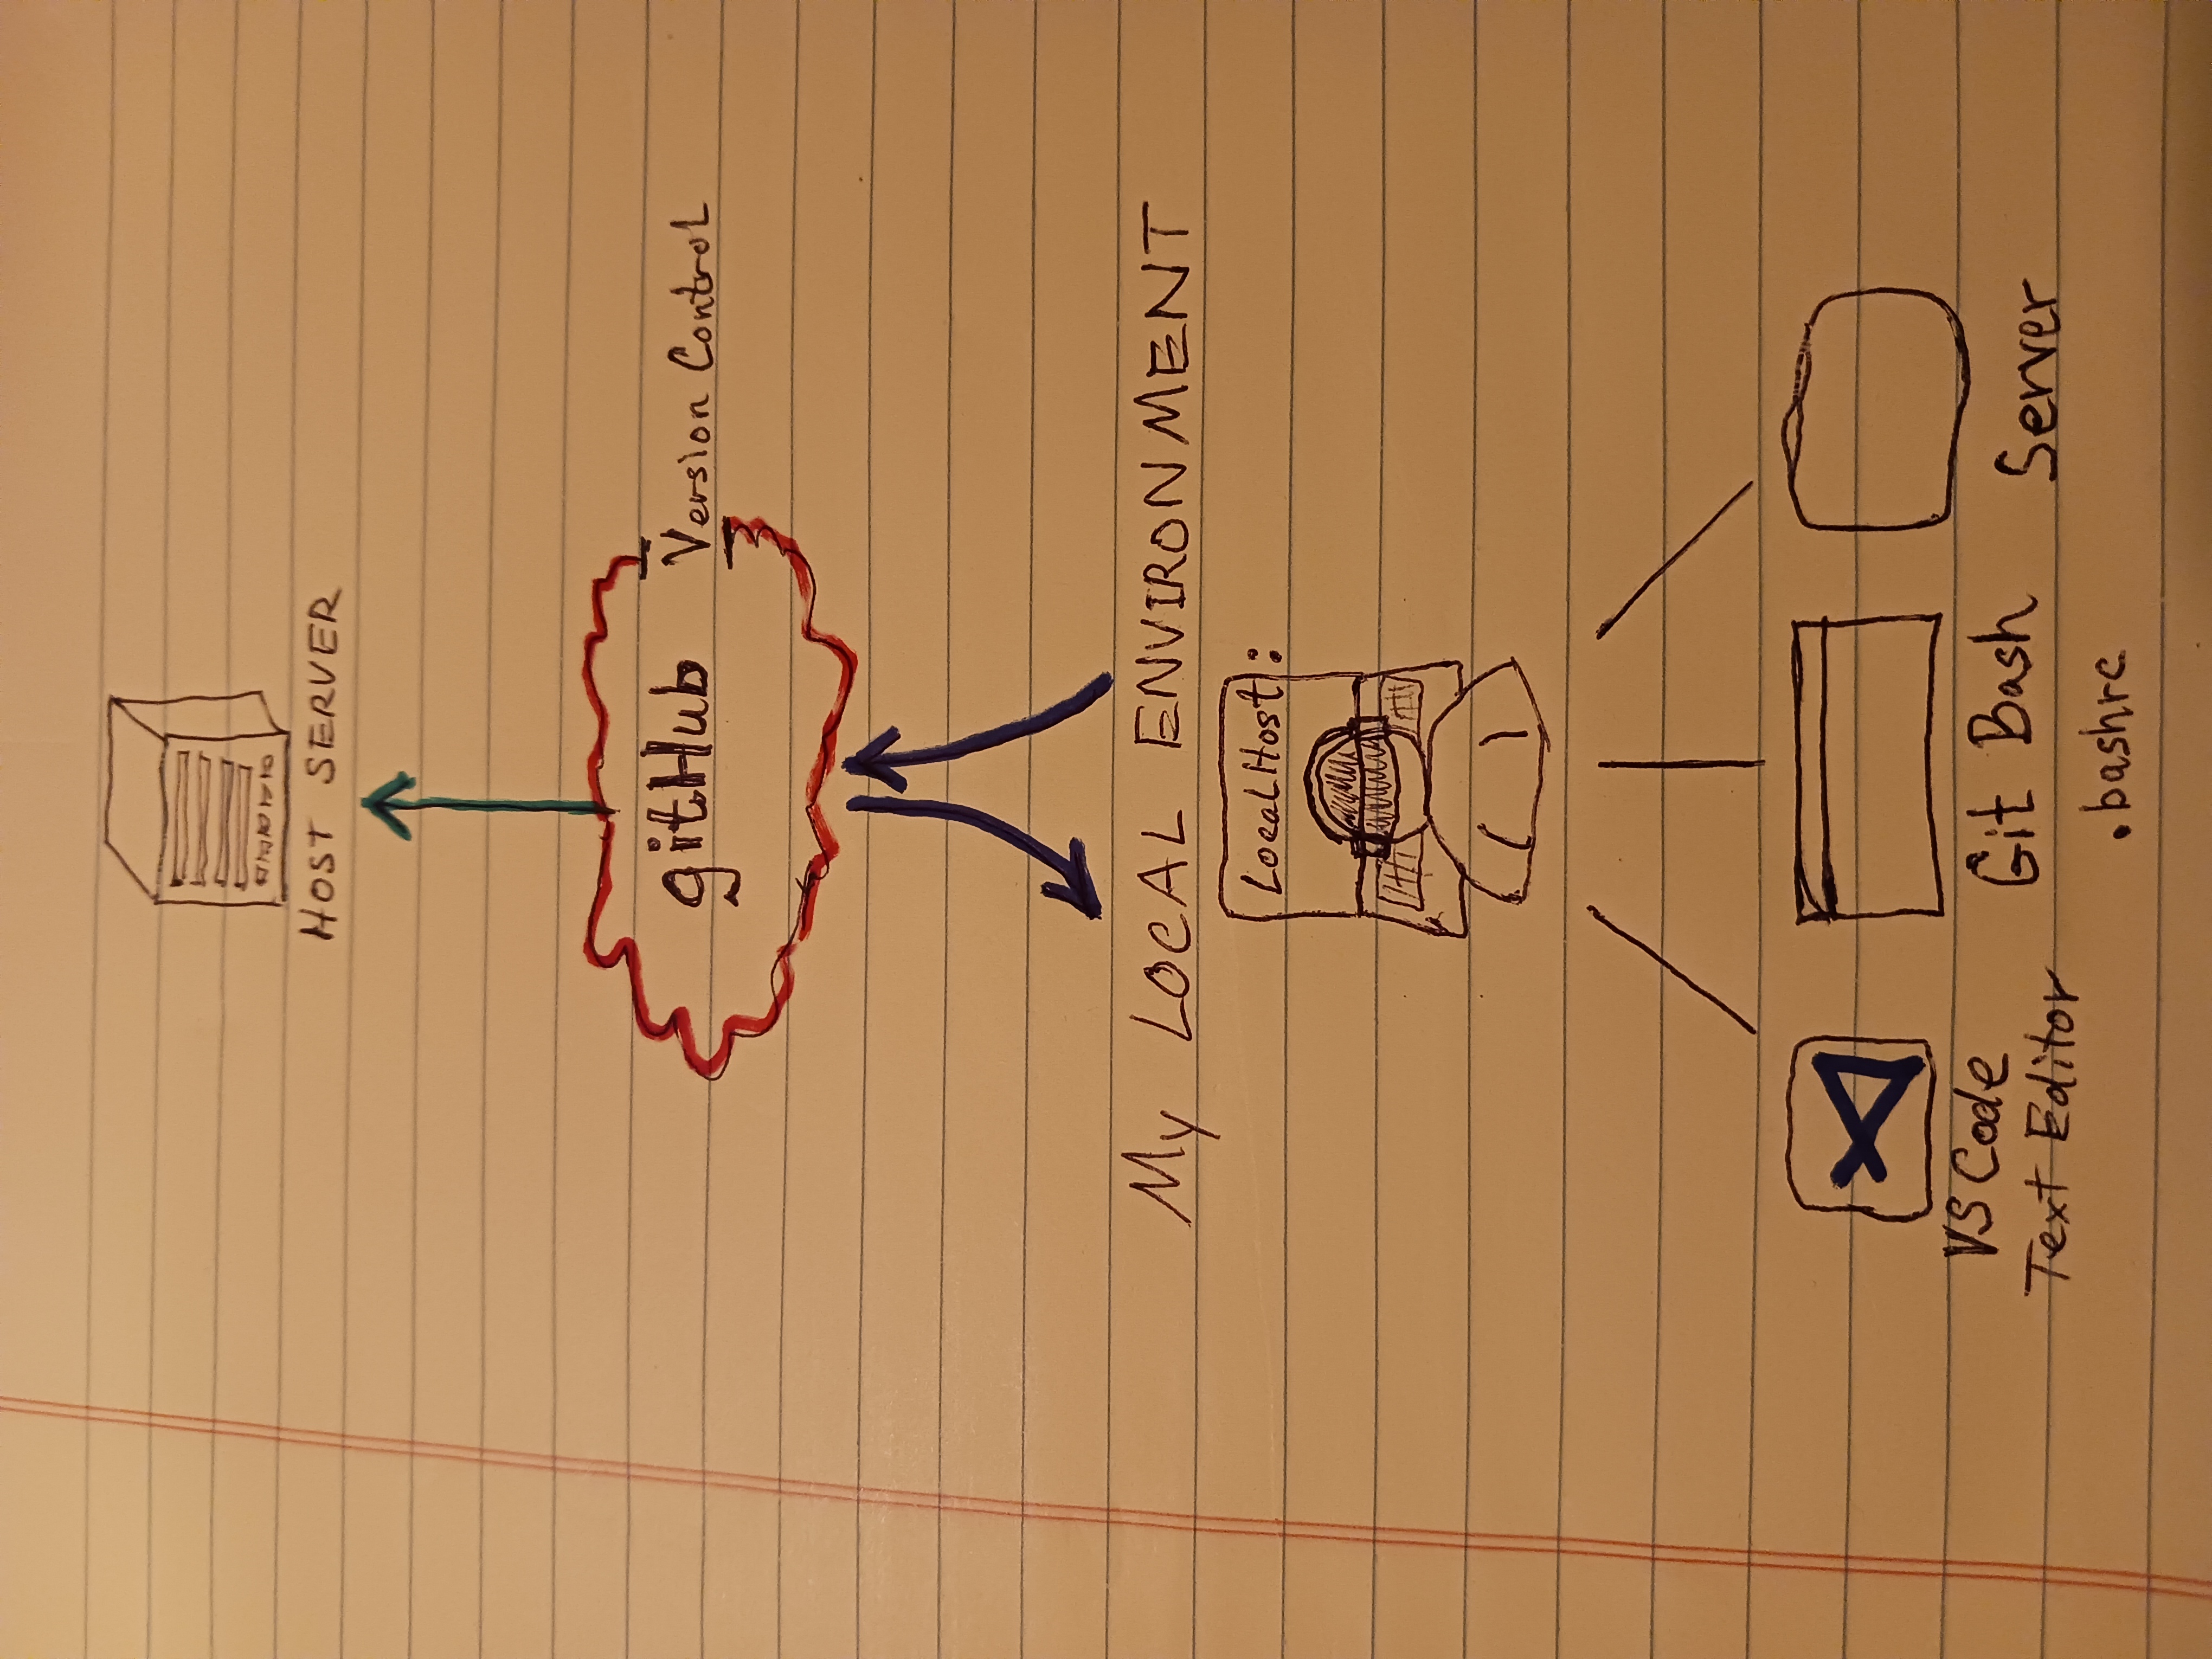 HOST SERVER
gitHub Version Control
My LOCAL ENVIRONMENT
LocalHost:
VS Code
Text Editor
Git Bash
.bashrc
Server